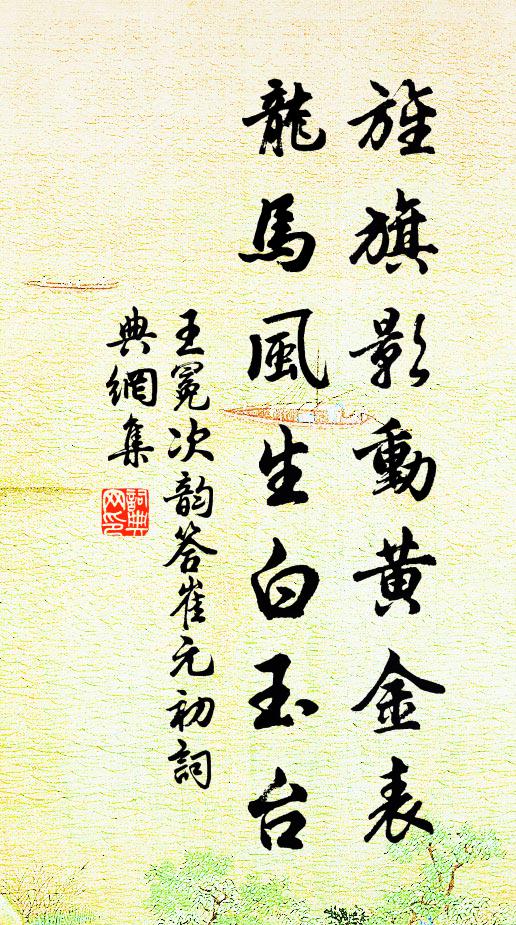 旌旗影動黄金表
龍馬風生白玉台
王冕次韵答崔元初詞
典網集
詞典网印